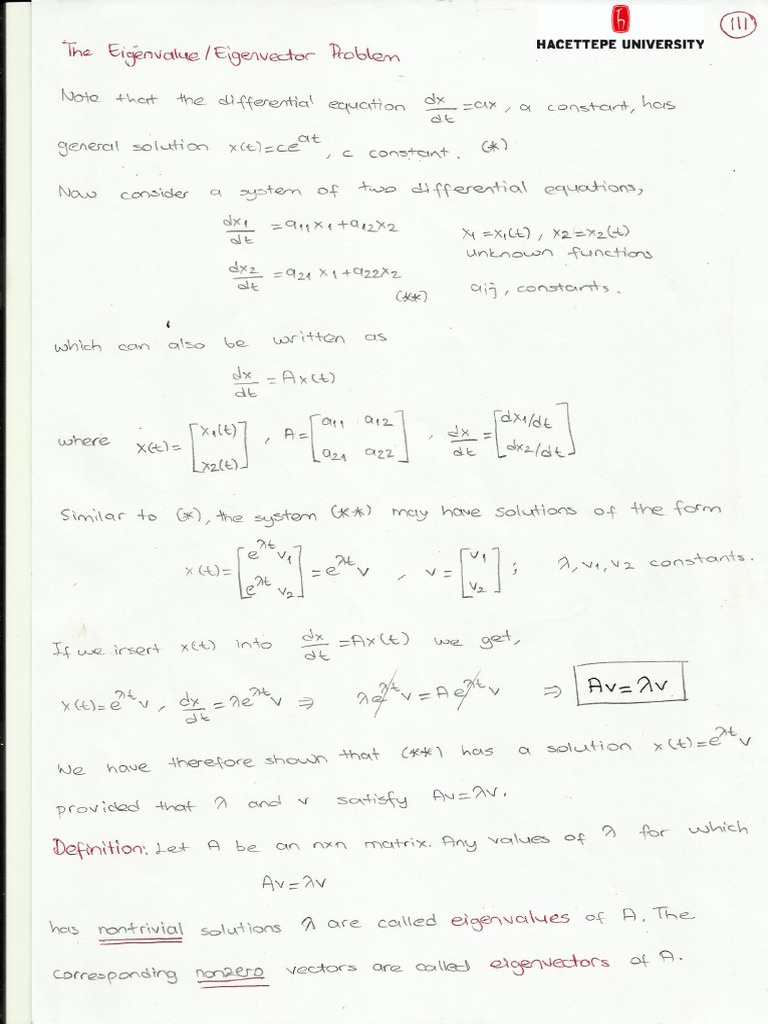 HACETTEPE UNIVERSITY
111
The Eigenvalue/Eigenvector Problem
Note that the differential equation dx/dt = ax, a constant, has
general solution x(t)=ce^{at}, c constant. (*)
Now consider a system of two differential equations,
dx1/dt = a11x1+a12x2 x1=x1(t), x2=x2(t)
unknown functions
dx2/dt = a21x1+a22x2 (**) aij, constants.
which can also be written as
dx/dt = Ax(t)
where x(t)=[x1(t) x2(t)], A=[a11 a12 a21 a22], dx/dt=[dx1/dt dx2/dt]
Similar to (*), the system (**) may have solutions of the form
x(t)=[e^{λt}v1 e^{λt}v2]=e^{λt}v, v=[v1 v2]; λ,v1,v2 constants.
If we insert x(t) into dx/dt=Ax(t) we get,
x(t)=e^{λt}v, dx/dt=λe^{λt}v ⇒ λe^{λt}v=Ae^{λt}v ⇒ Av=λv
We have therefore shown that (**) has a solution x(t)=e^{λt}v
provided that λ and v satisfy Av=λv.
Definition: Let A be an nxn matrix. Any values of λ for which
Av=λv
has nontrivial solutions λ are called eigenvalues of A. The
corresponding nonzero vectors are called eigenvectors of A.